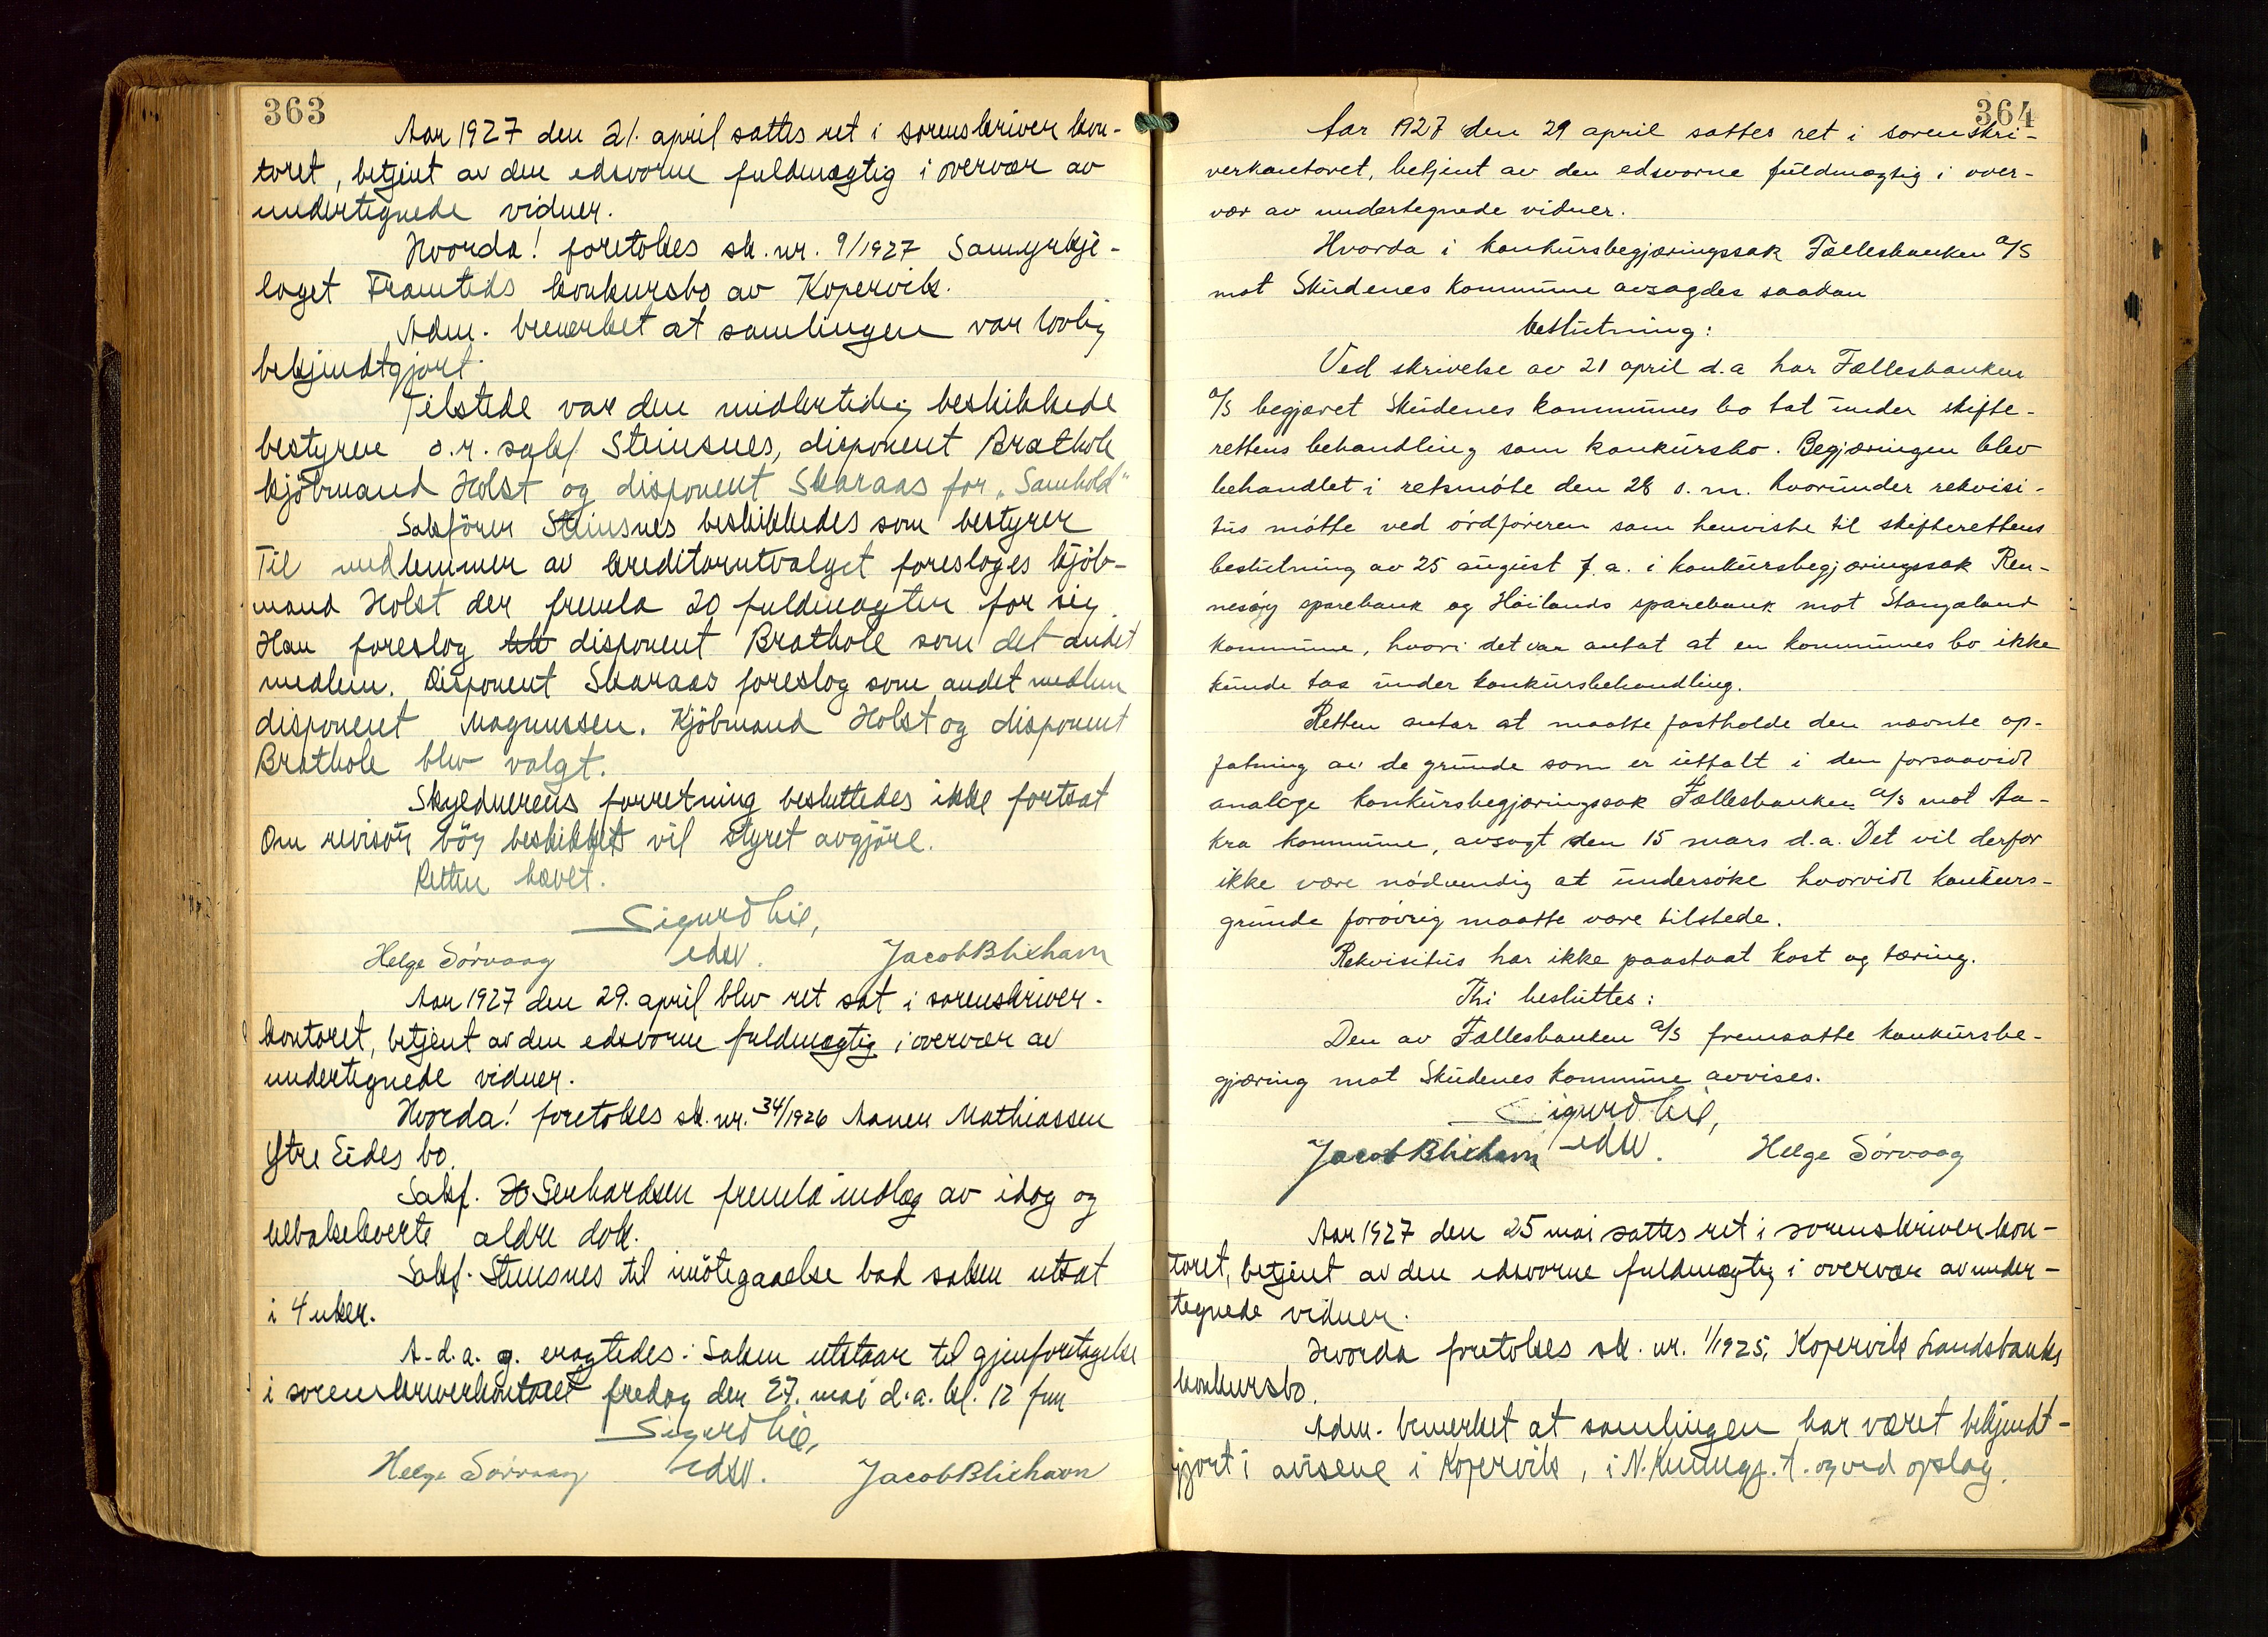 363
Aar 1927 den 21. april sattes ret i sorenskriverkon-
toret, betjent av den edsvorne fuldmægtig i overvær av
undertegnede vidner.
Hvorda! foretokes sk. nr. 9/1927 Samyrkje-
laget Framtids konkursbo av Kopervik.
Adm. bemerket at samlingen var lovlig
bekjendtgjort.
Tilstede var den midlertidig beskikkede
bestyrer o.r. sakf Steinsnes, disponent Brathole
kjöbmand Holst og disponent Skaraas for "Samhold"
Sakförer Steinsnes beskikkedes som bestyrer
Til medlemmer av kreditorutvalget foresloges kjöb-
mand Holst der fremla 20 fuldmagter for sig.
Han foreslog disponent Brathole som det andet
medlem. Disponent Skaraas foreslog som andet medlem
disponent Magnussen. Kjöbmand Holst og disponent
Brathole blev valgt.
Skyldnerens forretning besluttedes ikke fortsat
Om revisor bör beskikket vil styret avgjöre.
Retten hævet.
Sigurd Lie,
edsv.
Helge Sörvaag Jacob Blikhavn
Aar 1927 den 29. april blev ret sat i sorenskriver-
kontoret, betjent av den edsvorne fuldmægtig i overvær av
undertegnede vidner.
Hvorda! foretokes sk. nr. 34/1926 Aanen Mathiassen
Ytre Eides bo.
Sakf. Gerhardsen fremla indlæg av idag og
tilbakeleverte ældre dok.
Sakf. Steinsnes til imötegaaelse bad saken utsat
i 4 uker.
A. d. a. g. eragtedes: Saken utstaar til gjenforetagelse
i sorenskriverkontoret fredag den 27. mai d.a. kl. 12 fm
Sigurd Lie,
edsv.
Helge Sörvaag Jacob Blikhavn
364
Aar 1927 den 29 april sattes ret i sorenskri-
verkontoret, betjent av den edsvorne fuldmægtig i over-
vær av undertegnede vidner.
Hvorda i konkursbegjæringssak Fællesbanken a/s
mot Skudenes kommune avsagdes saadan
beslutning:
Ved skrivelse av 21 april d.a har Fællesbanken
a/s begjæret Skudenes kommunes bo tat under skifte-
rettens behandling som konkursbo. Begjæringen blev
behandlet i retsmöte den 28 s.m. hvorunder rekvisi-
tus mötte ved ordföreren som henviste til skifterettens
beslutning av 25 august f.a. i konkursbegjæringssak Ren-
nesöy sparebank og Höilands sparebank mot Stangaland
kommune, hvori det var antat at en kommunes bo ikke
kunde tas under konkursbehandling.
Retten antar at maatte fastholde den nævnte op-
fatning av de grunde som er uttalt i den forsaavidt
analoge konkursbegjæringssak Fællesbanken a/s mot Aa-
kra kommune, avsagt den 15 mars d.a. Det vil derfor
ikke være nödvendig at undersöke hvorvidt konkurs-
grunde forövrig maatte være tilstede.
Rekvisitus har ikke paastaat kost og tæring.
Thi besluttes:
Den av Fællesbanken a/s fremsatte konkursbe-
gjæring mot Skudenes kommune avvises.
Sigurd Lie,
edsv.
Jacob Blikhavn Helge Sörvaag
Aar 1927 den 25 mai sattes ret i sorenskriverkon-
toret, betjent av den edsvorne fuldmægtig i overvær av under-
tegnede vidner.
Hvorda foretokes sk. nr. 1/1925, Kopervik Landsbanks
konkursbo.
Adm. bemerket at samlingen har været bekjendt-
gjort i avisene i Kopervik, i N. Kundgj. t. og ved opslag.